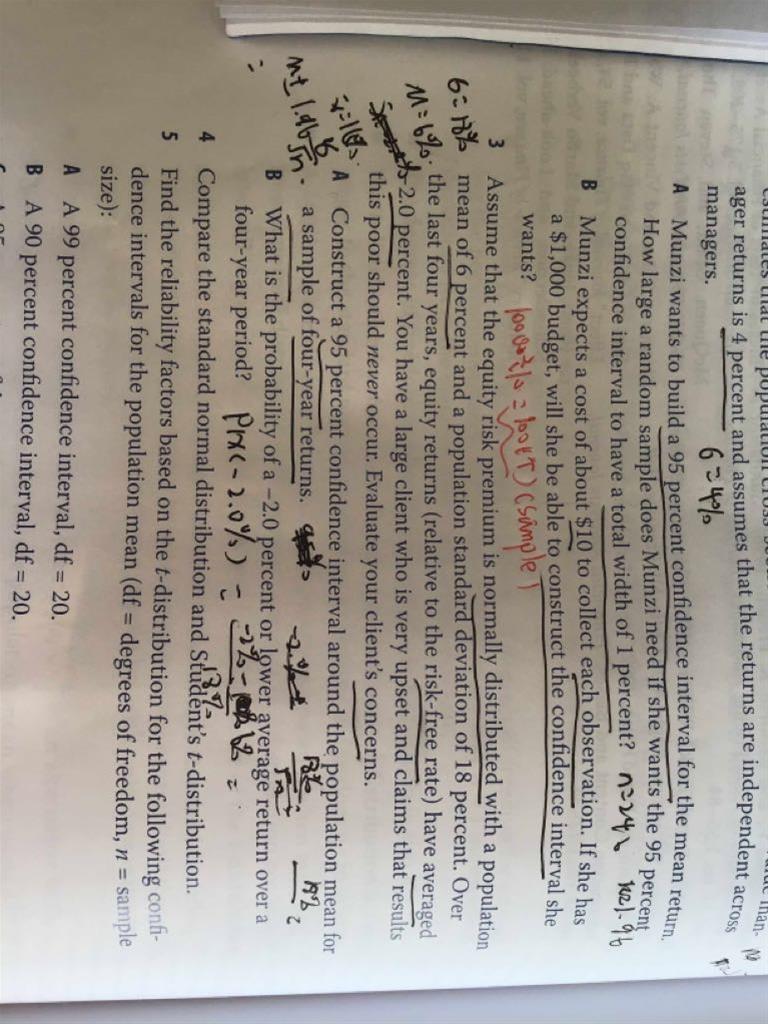 ager returns is 4 percent and assumes that the returns are independent across
managers.
6=4%
A Munzi wants to build a 95 percent confidence interval for the mean return.
How large a random sample does Munzi need if she wants the 95 percent
confidence interval to have a total width of 1 percent?
B Munzi expects a cost of about $10 to collect each observation. If she has
a $1,000 budget, will she be able to construct the confidence interval she
wants?
(sample)
3 Assume that the equity risk premium is normally distributed with a population
6=18% mean of 6 percent and a population standard deviation of 18 percent. Over
M=6% the last four years, equity returns (relative to the risk-free rate) have averaged
−2.0 percent. You have a large client who is very upset and claims that results
this poor should never occur. Evaluate your client's concerns.
A Construct a 95 percent confidence interval around the population mean for
a sample of four-year returns.
B What is the probability of a −2.0 percent or lower average return over a
four-year period?
4 Compare the standard normal distribution and Student's t-distribution.
5 Find the reliability factors based on the t-distribution for the following confi-
dence intervals for the population mean (df = degrees of freedom, n = sample
size):
A A 99 percent confidence interval, df = 20.
B A 90 percent confidence interval, df = 20.